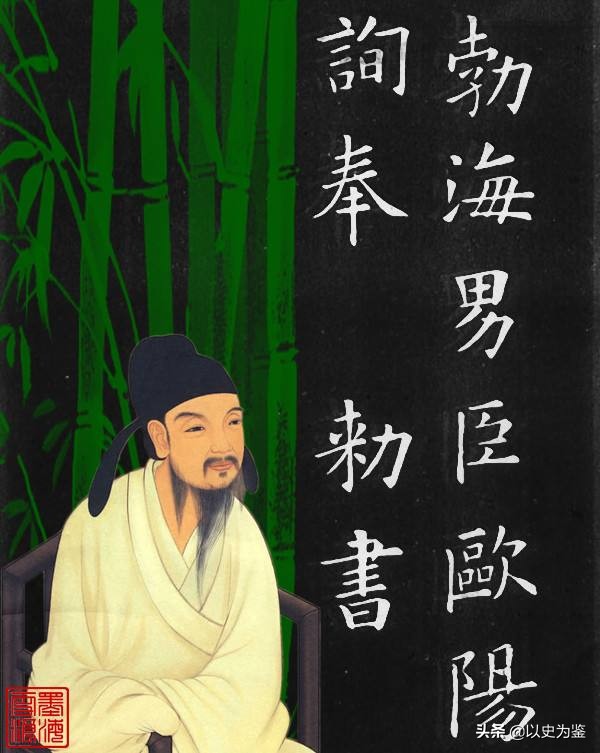 勃海男臣歐陽
詢奉 勅書
头条 @以史为鉴